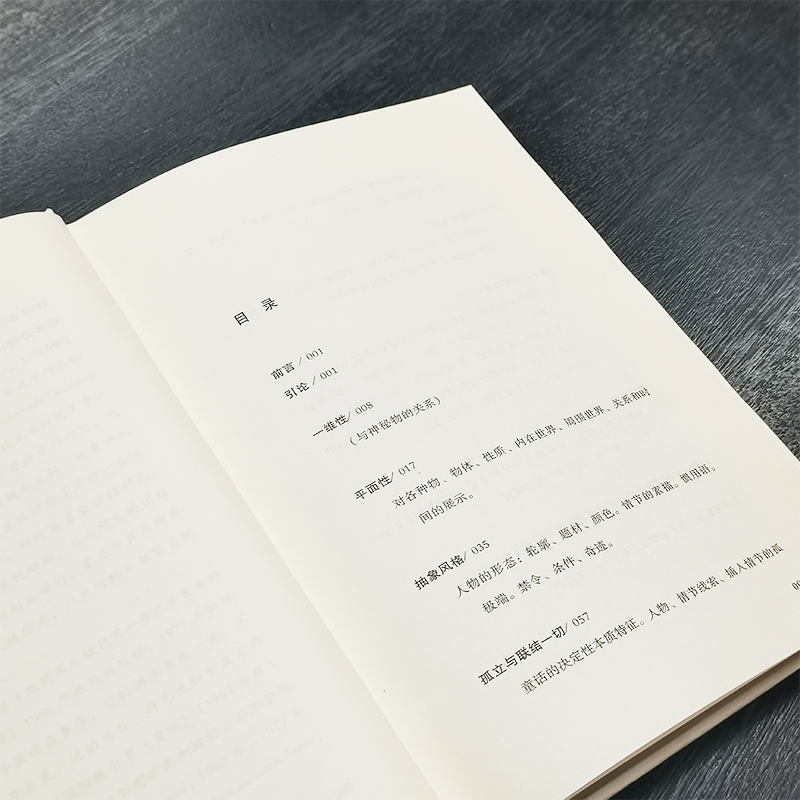 目 录
前言 / 001
引论 / 001
一维性 / 008
(与神秘物的关系)
平面性 / 017
对各种物、物体、性质、内在世界、周围世界、关系和时
间的展示。
抽象风格 / 035
人物的形态：轮廓、题材、颜色。情节的素描。惯用语。
极端。禁令、条件、奇迹。
孤立与联结一切 / 057
童话的决定性本质特征。人物、情节线索、插入情节的孤